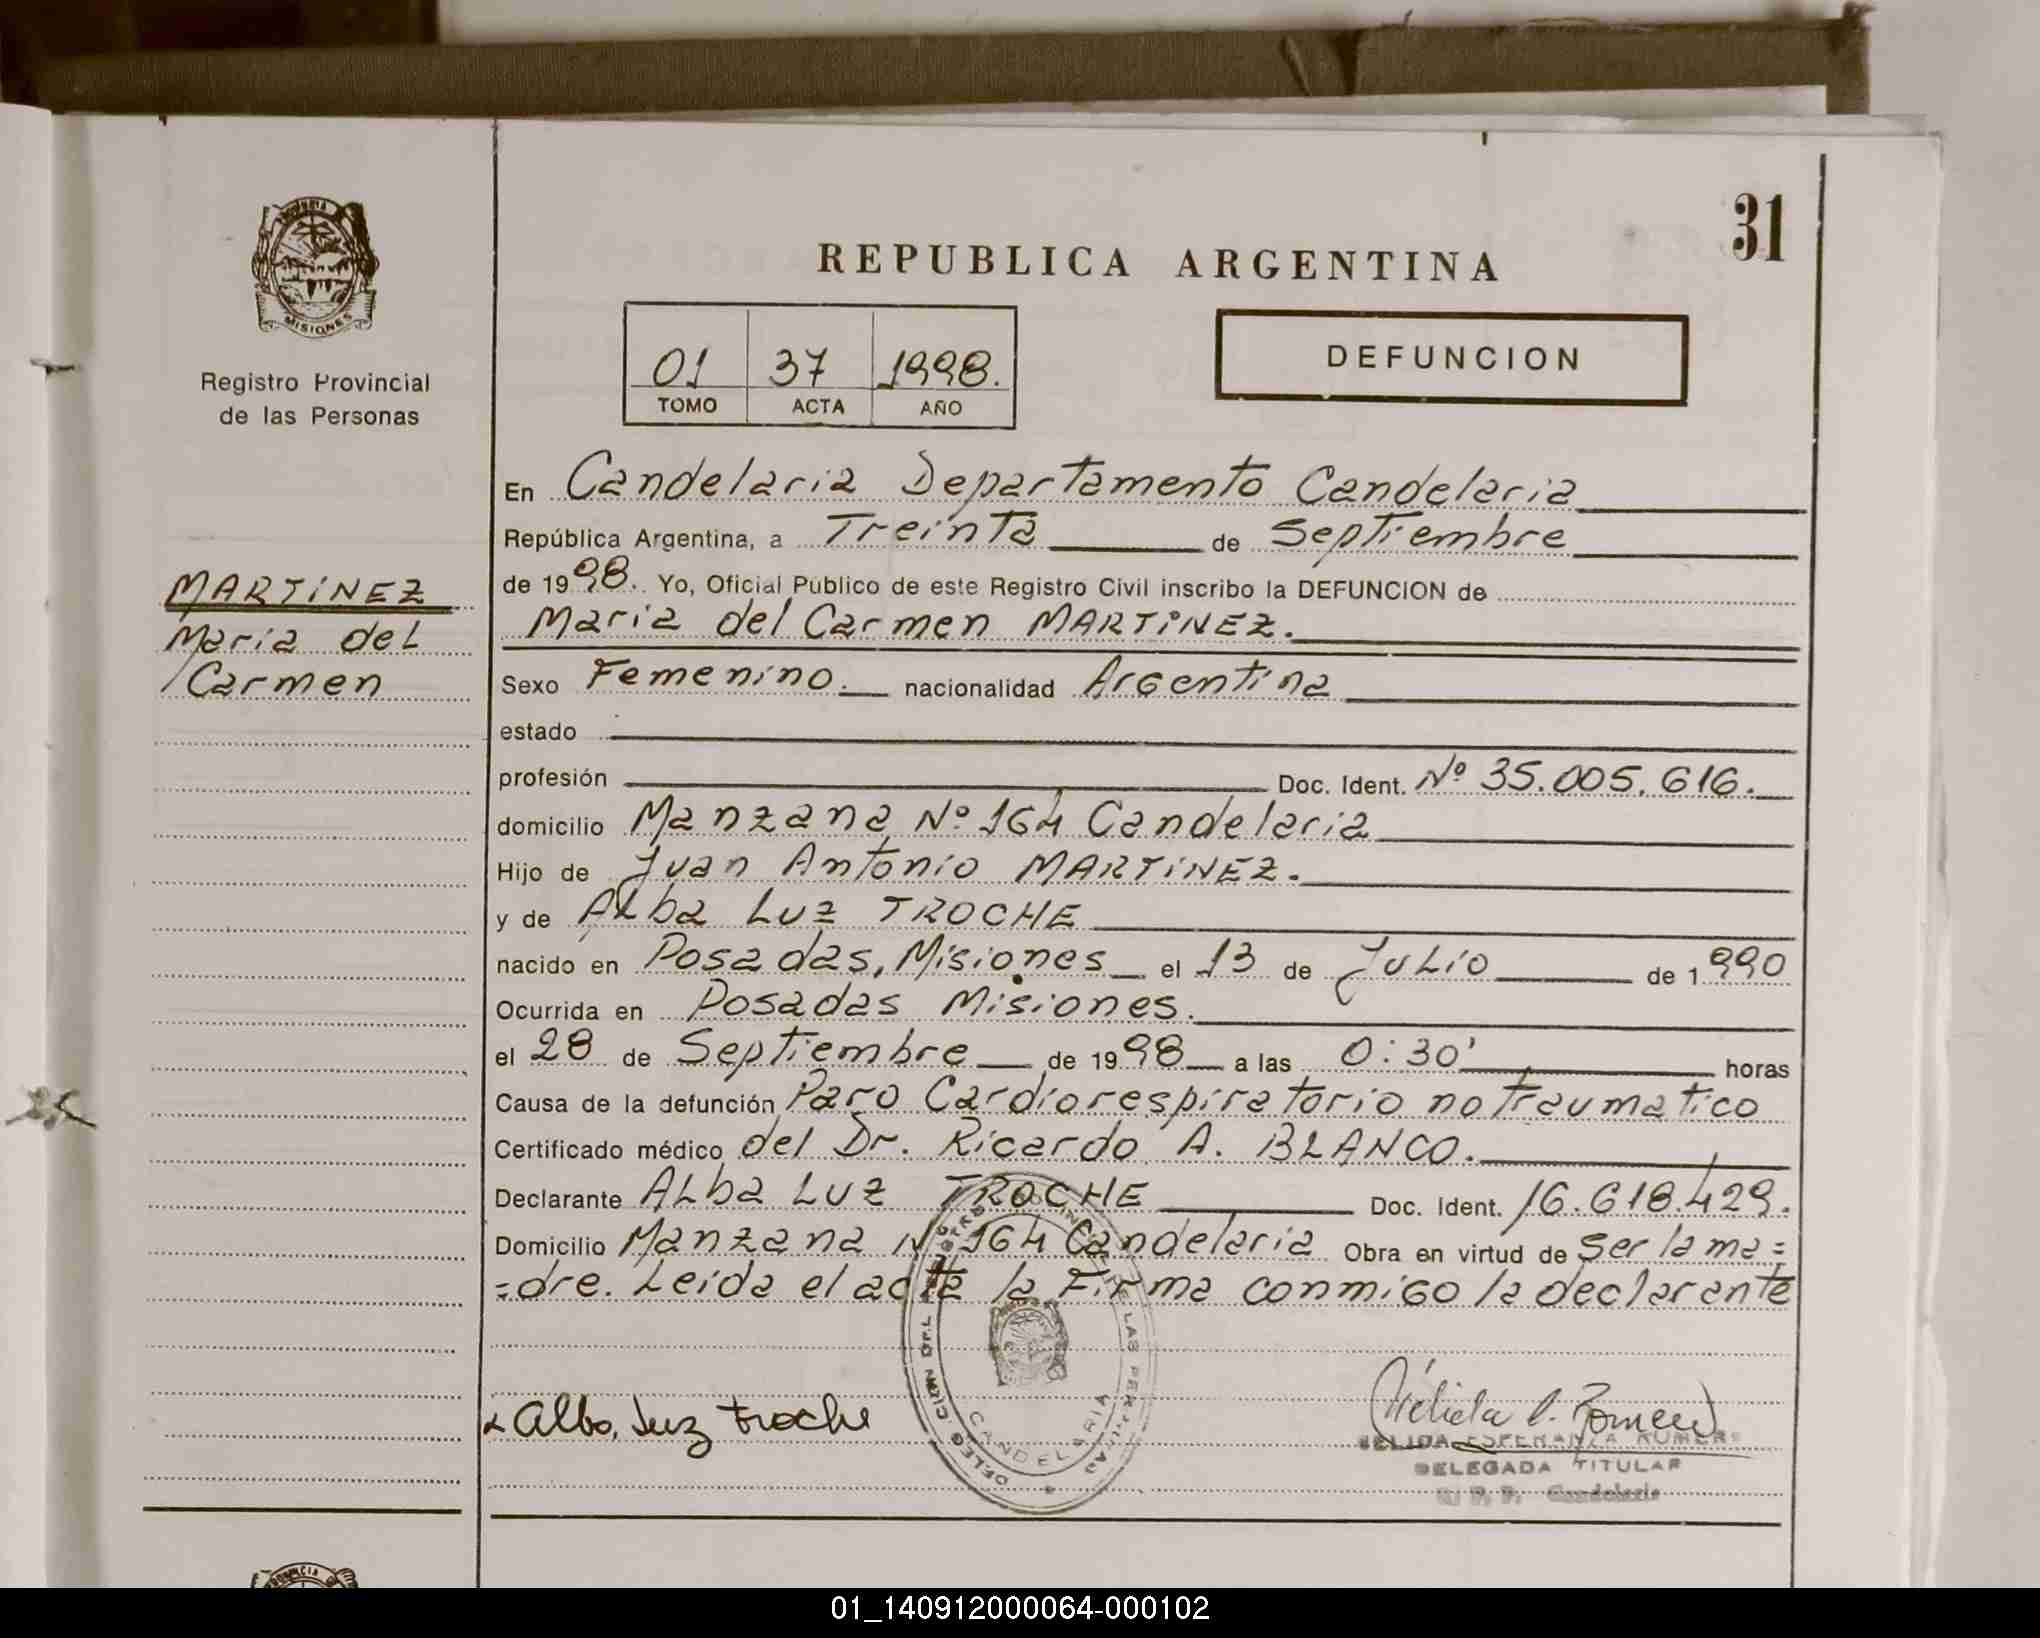 31
REPUBLICA ARGENTINA
PROVINCIA
MISIONES
Registro Provincial
de las Personas
01 37 1998.
TOMO ACTA AÑO
DEFUNCION
MARTINEZ
Maria del
Carmen
En Candelaria Departamento Candelaria
República Argentina, a Treinta de Septiembre
de 1998. Yo, Oficial Público de este Registro Civil inscribo la DEFUNCION de
Maria del Carmen MARTINEZ.
Sexo Femenino. nacionalidad Argentina
estado
profesión Doc. Ident. Nº 35.005.616.
domicilio Manzana Nº 164 Candelaria
Hijo de Juan Antonio MARTINEZ.
y de Alba Luz TROCHE
nacido en Posadas, Misiones el 13 de Julio de 1990
Ocurrida en Posadas Misiones.
el 28 de Septiembre de 1998 a las 0:30' horas
Causa de la defunción Paro Cardiorespiratorio no Traumatico
Certificado médico del Dr. Ricardo A. BLANCO.
Declarante Alba Luz TROCHE Doc. Ident. 16.618.429.
Domicilio Manzana Nº 164 Candelaria Obra en virtud de Ser la ma=
=dre. Leida el acta la Firma conmigo la declarante
Alba Luz Troche
CANDELARIA
DELEGADA TITULAR
Candelaria
PROVINCIA
01_140912000064-000102